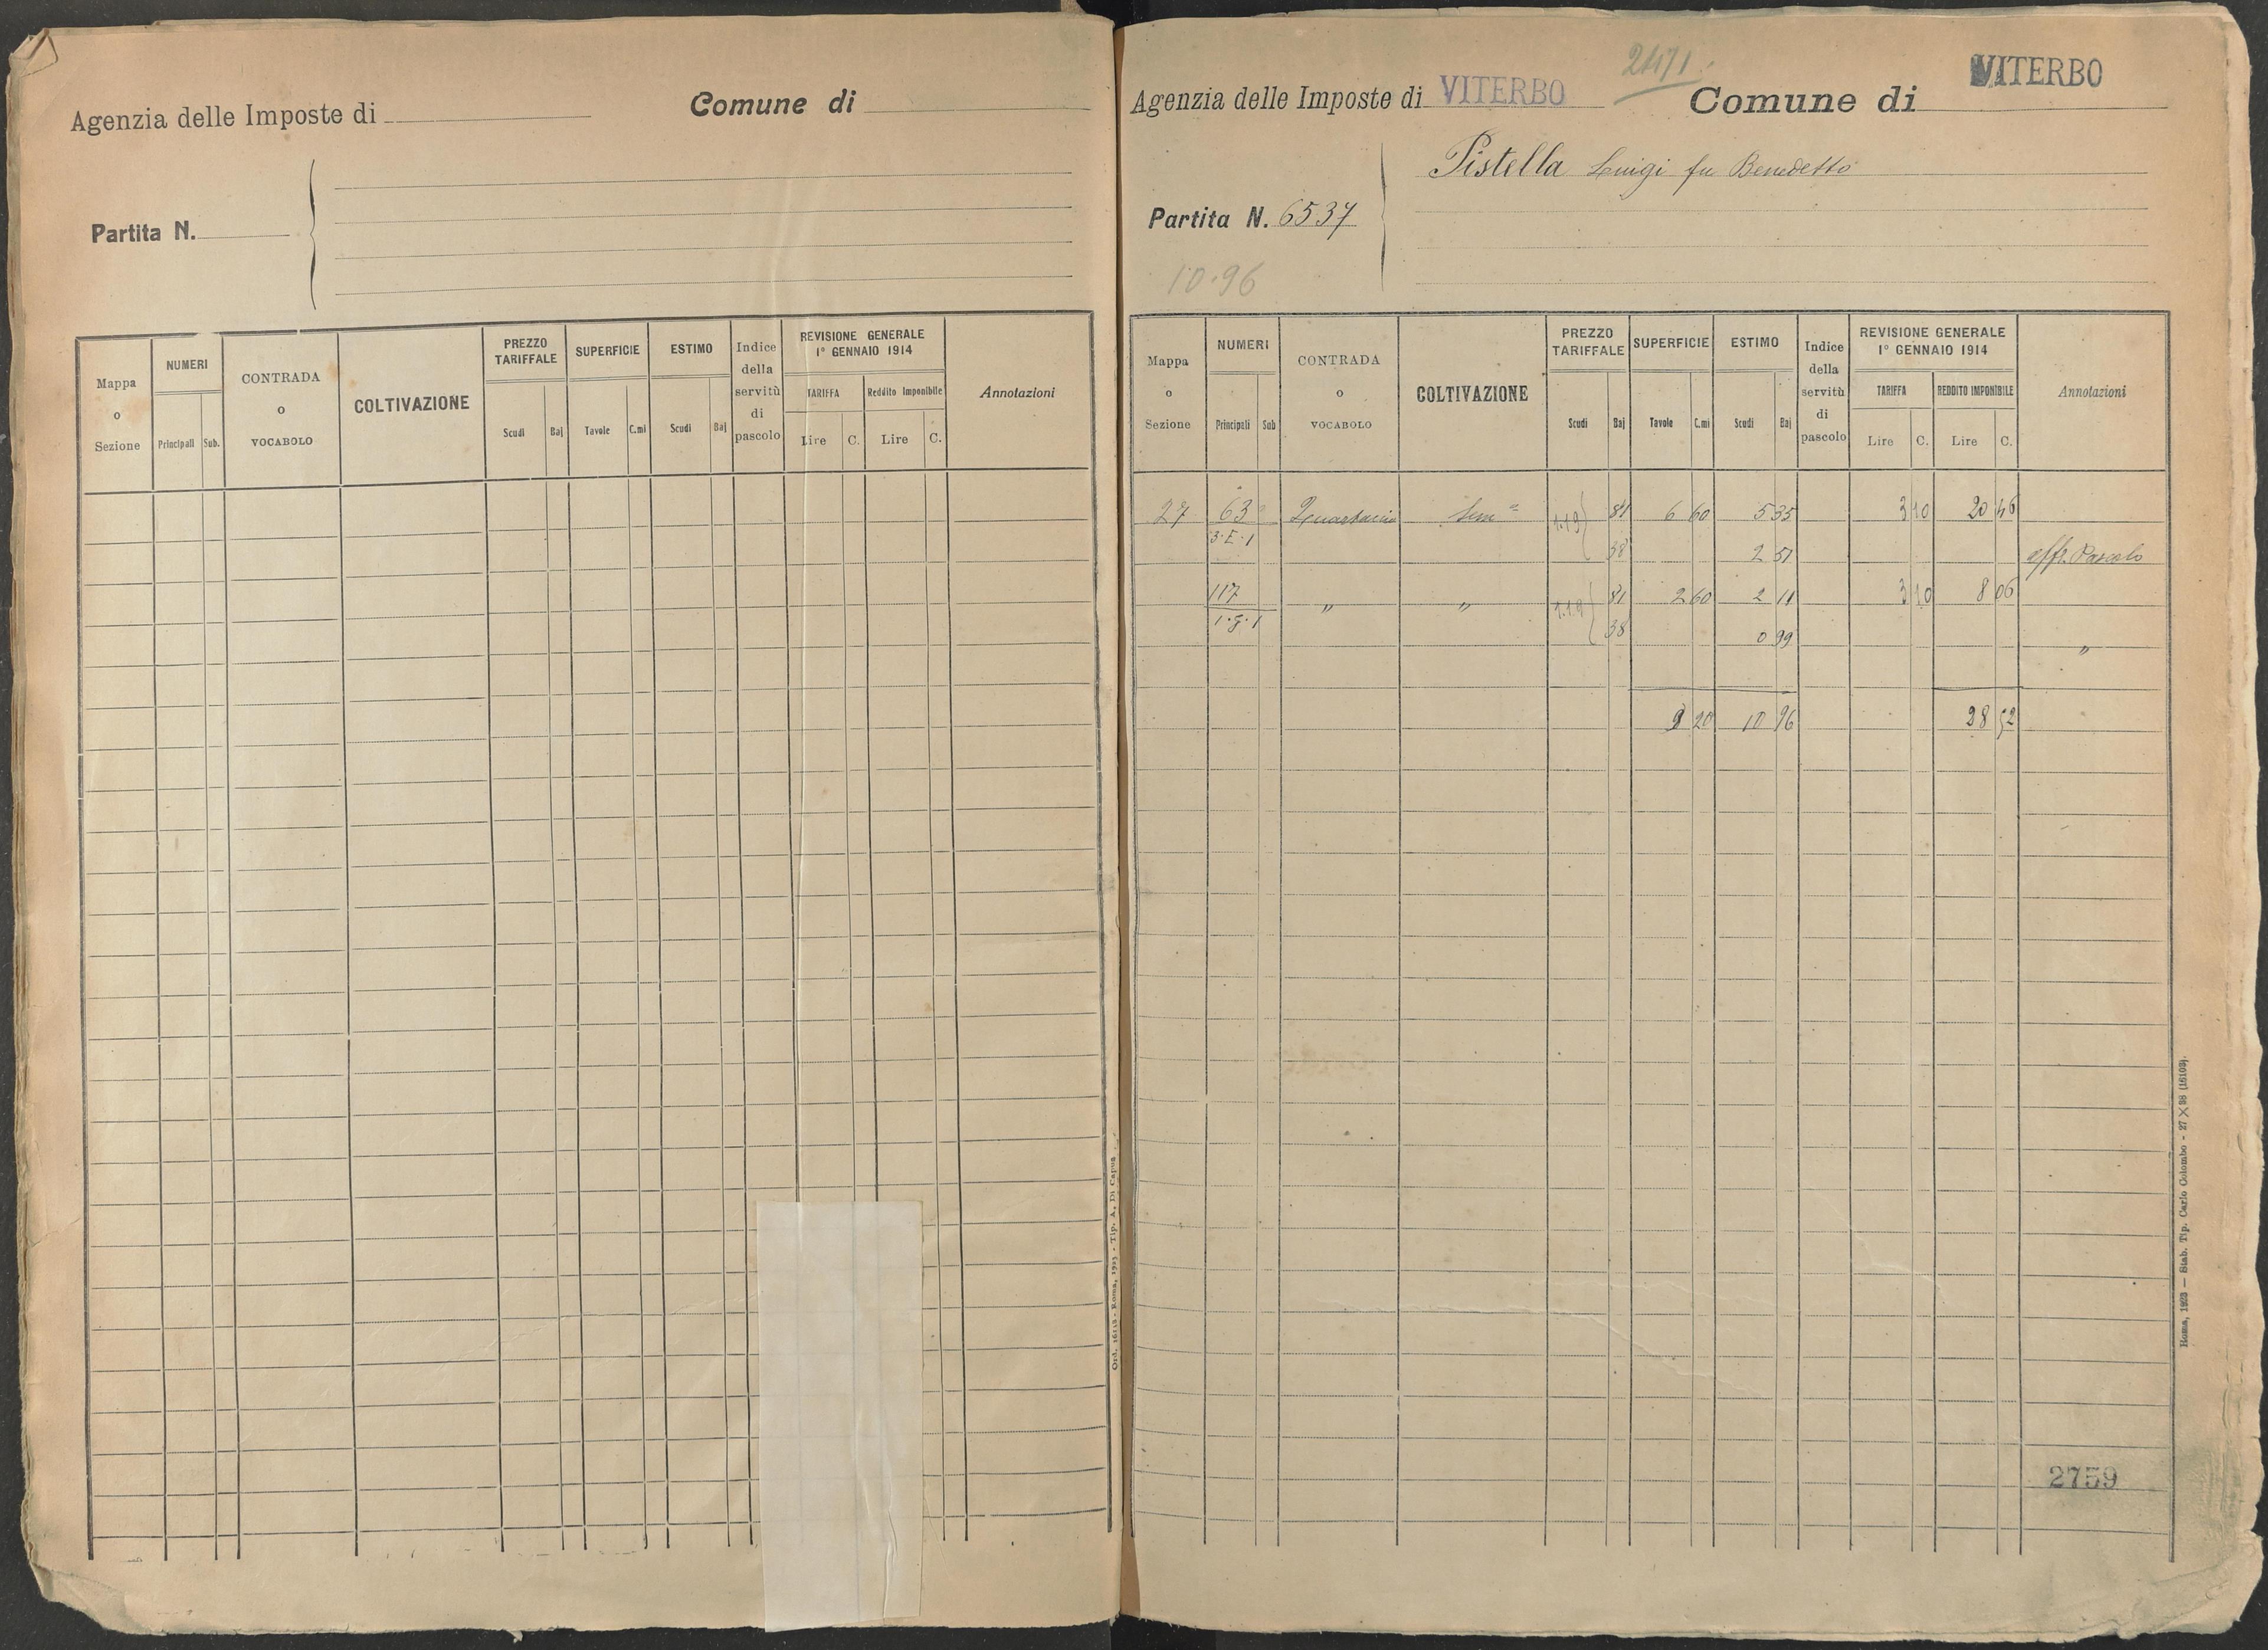 Agenzia delle Imposte di
Comune di
Partita N.
Mappa o Sezione
NUMERI
Principali
Sub.
CONTRADA o VOCABOLO
COLTIVAZIONE
PREZZO TARIFFALE
Scudi
Baj
SUPERFICIE
Tavole
C.mi
ESTIMO
Scudi
Baj
Indice della servitù di pascolo
REVISIONE GENERALE
1° GENNAIO 1914
TARIFFA
Reddito Imponibile
Lire
C.
Lire
C.
Annotazioni
2471
Agenzia delle Imposte di VITERBO
Comune di VITERBO
Pistella Luigi fu Benedetto
Partita N. 6537
10.96
Mappa o Sezione
NUMERI
Principali
Sub
CONTRADA o VOCABOLO
COLTIVAZIONE
PREZZO TARIFFALE
Scudi
Baj
SUPERFICIE
Tavole
C.mi
ESTIMO
Scudi
Baj
Indice della servitù di pascolo
REVISIONE GENERALE
1° GENNAIO 1914
TARIFFA
REDDITO IMPONIBILE
Lire
C.
Lire
C.
Annotazioni
27 63 Quartuccio Sem 1.19 81 6 60 5 35 3 10 20 46
3.E.1 38 2 51 aff. Pascolo
117 " " 1.19 81 2 60 2 11 3 10 8 06
1.g.1 38 0 99 "
9 20 10 96 28 52
2759
Roma, 1923 — Stab. Tip. Carlo Colombo - 27 X 38 (15103).